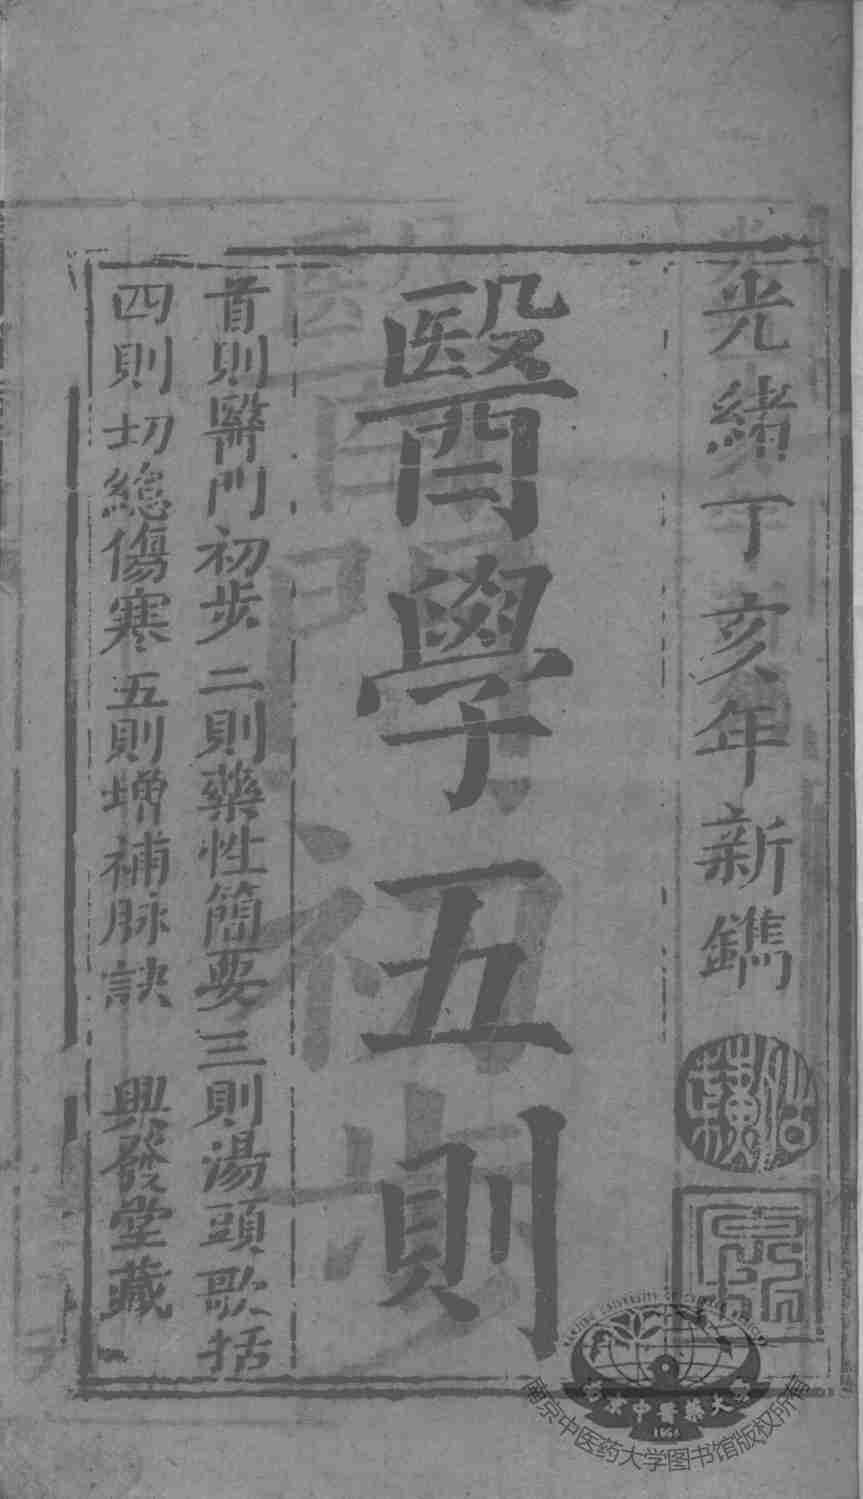 光緒丁亥年新鐫
醫學五則
首則醫門初步二則藥性簡要三則湯頭歌括
四則切總傷寒五則增補脉訣 興發堂藏
南京中醫藥大學
1954
南京中医药大学图书馆版权所有